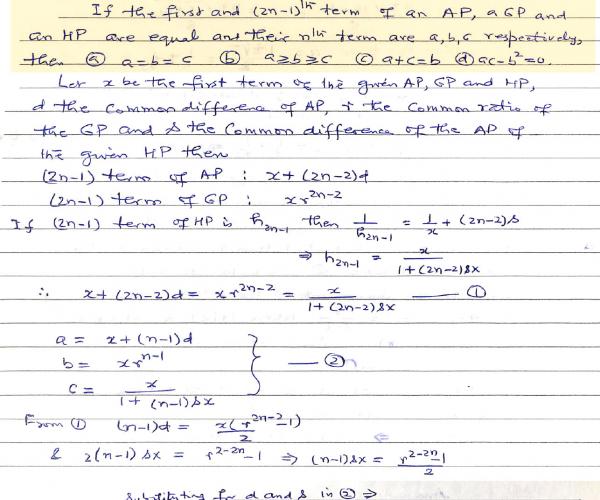 If the first and (2n-1)th term of an AP, a GP and
an HP are equal and their nth term are a,b,c respectively,
then (a) a=b=c (b) a≥b≥c (c) a+c=b (d) ac-b²=0.
Let x be the first term of the given AP, GP and HP,
d the common difference of AP, r the common ratio of
the GP and s the common difference of the AP of
the given HP then
(2n-1) term of AP : x+(2n-2)d
(2n-1) term of GP : xr^{2n-2}
If (2n-1) term of HP is h_{2n-1} then 1/h_{2n-1} = 1/x + (2n-2)s
⇒ h_{2n-1} = x/(1+(2n-2)sx)
∴ x+(2n-2)d = xr^{2n-2} = x/(1+(2n-2)sx) —— ①
a = x+(n-1)d
b = xr^{n-1} } —— ②
c = x/(1+(n-1)sx)
From ① (n-1)d = x(r^{2n-2}-1)/2
& 2(n-1)sx = r^{2-2n}-1 ⇒ (n-1)sx = (r^{2-2n}-1)/2
Substituting for d and s in ② ⇒